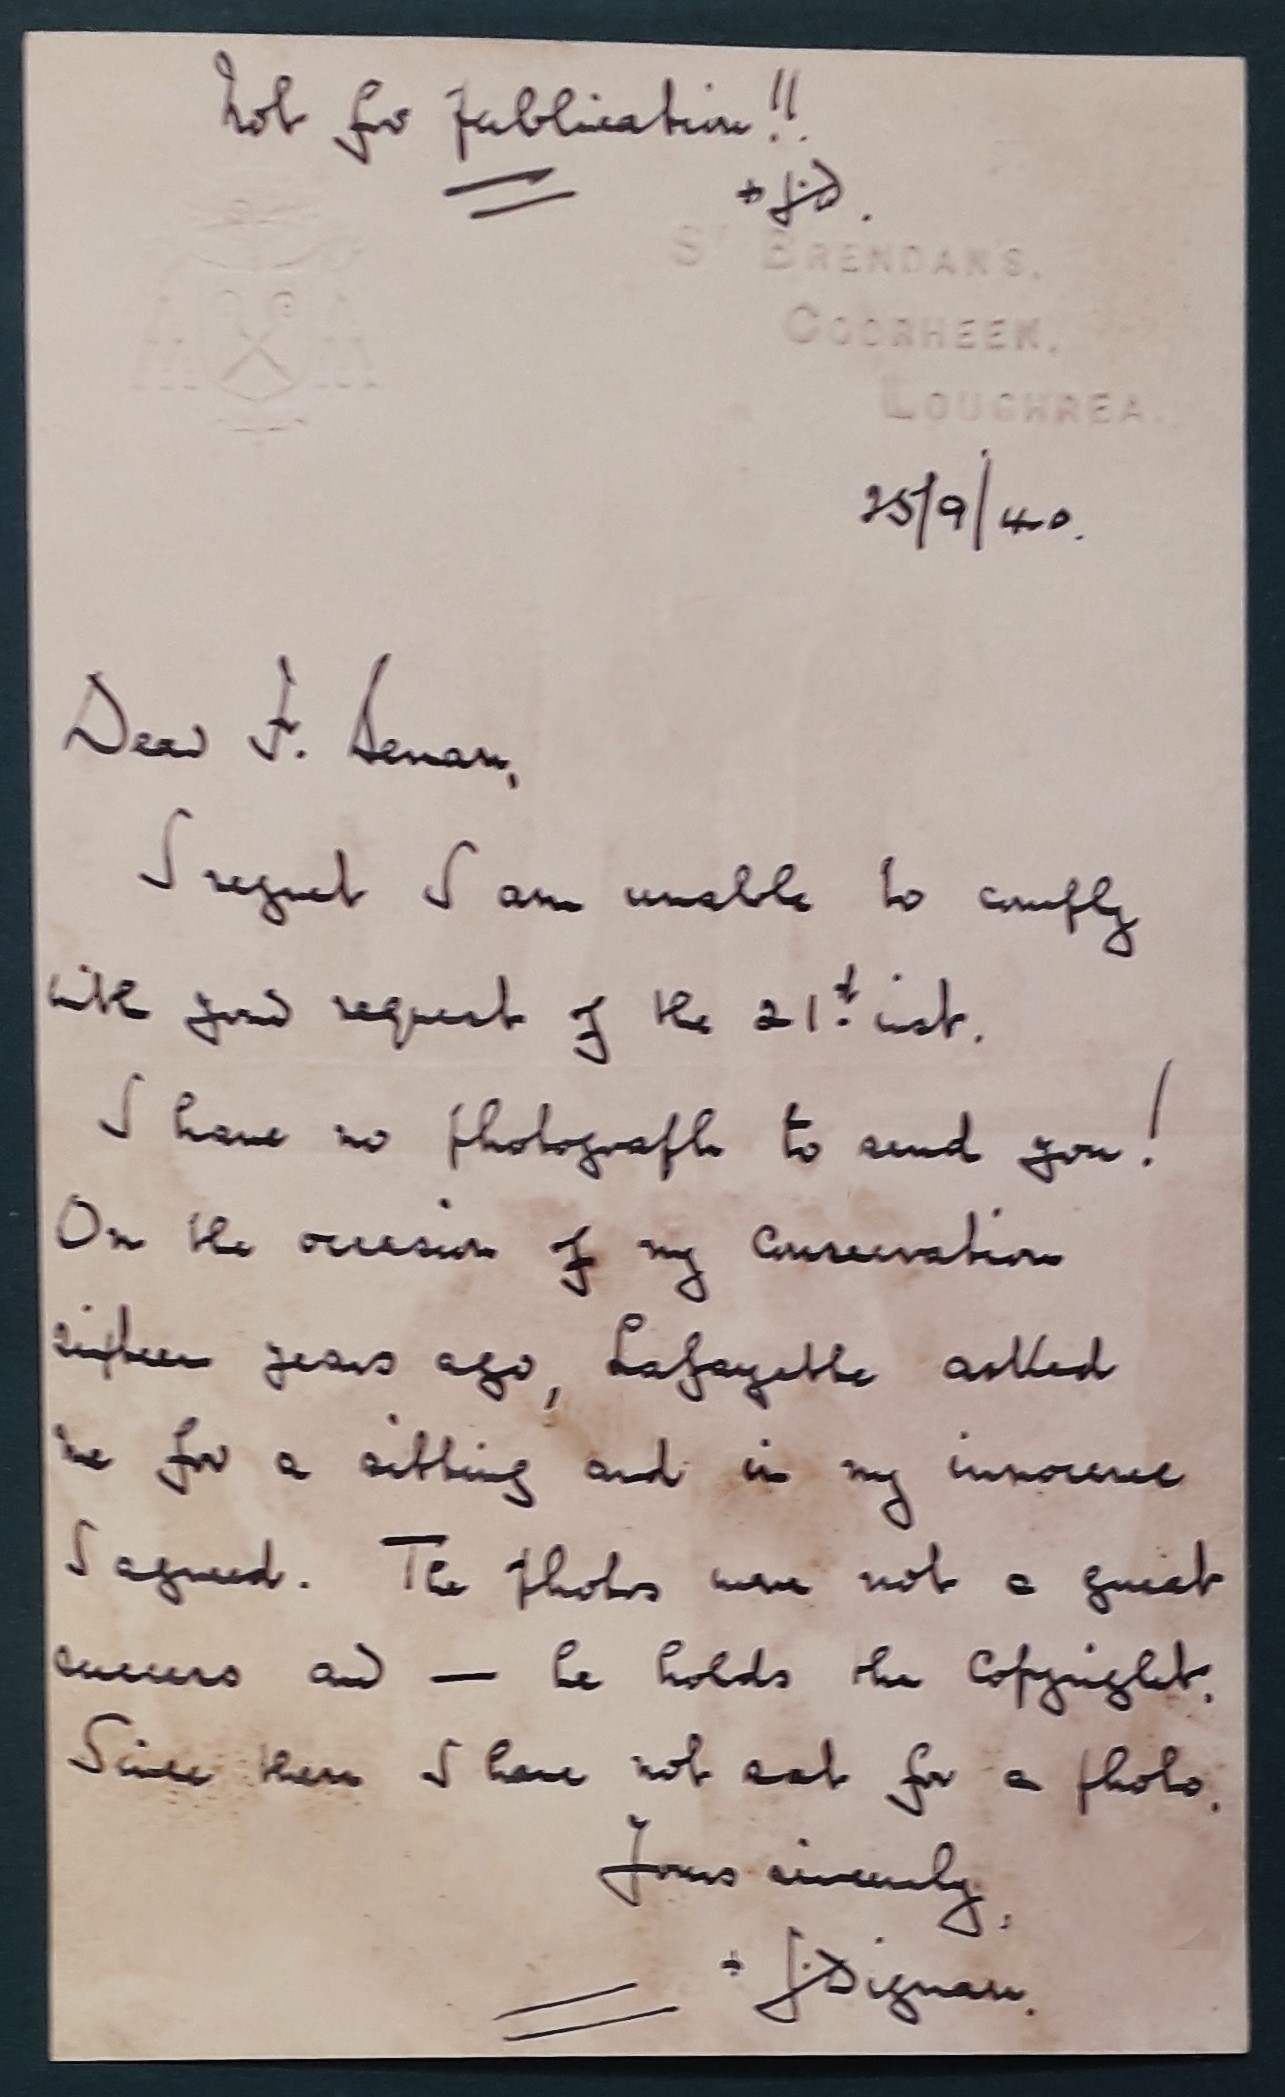 Not for publication!!
+ J.D.
St BRENDAN'S.
COORHEEN.
LOUGHREA.
25/9/40.
Dear F. Senan,
I regret I am unable to comply
with your request of the 21st. inst.
I have no photograph to send you!
On the occasion of my Consecration
sixteen years ago, Lafayette asked
me for a sitting and in my innocence
I agreed. The photos were not a great
success and — he holds the Copyright.
Since then I have not sat for a photo.
Yours sincerely,
+ J. Dignan.